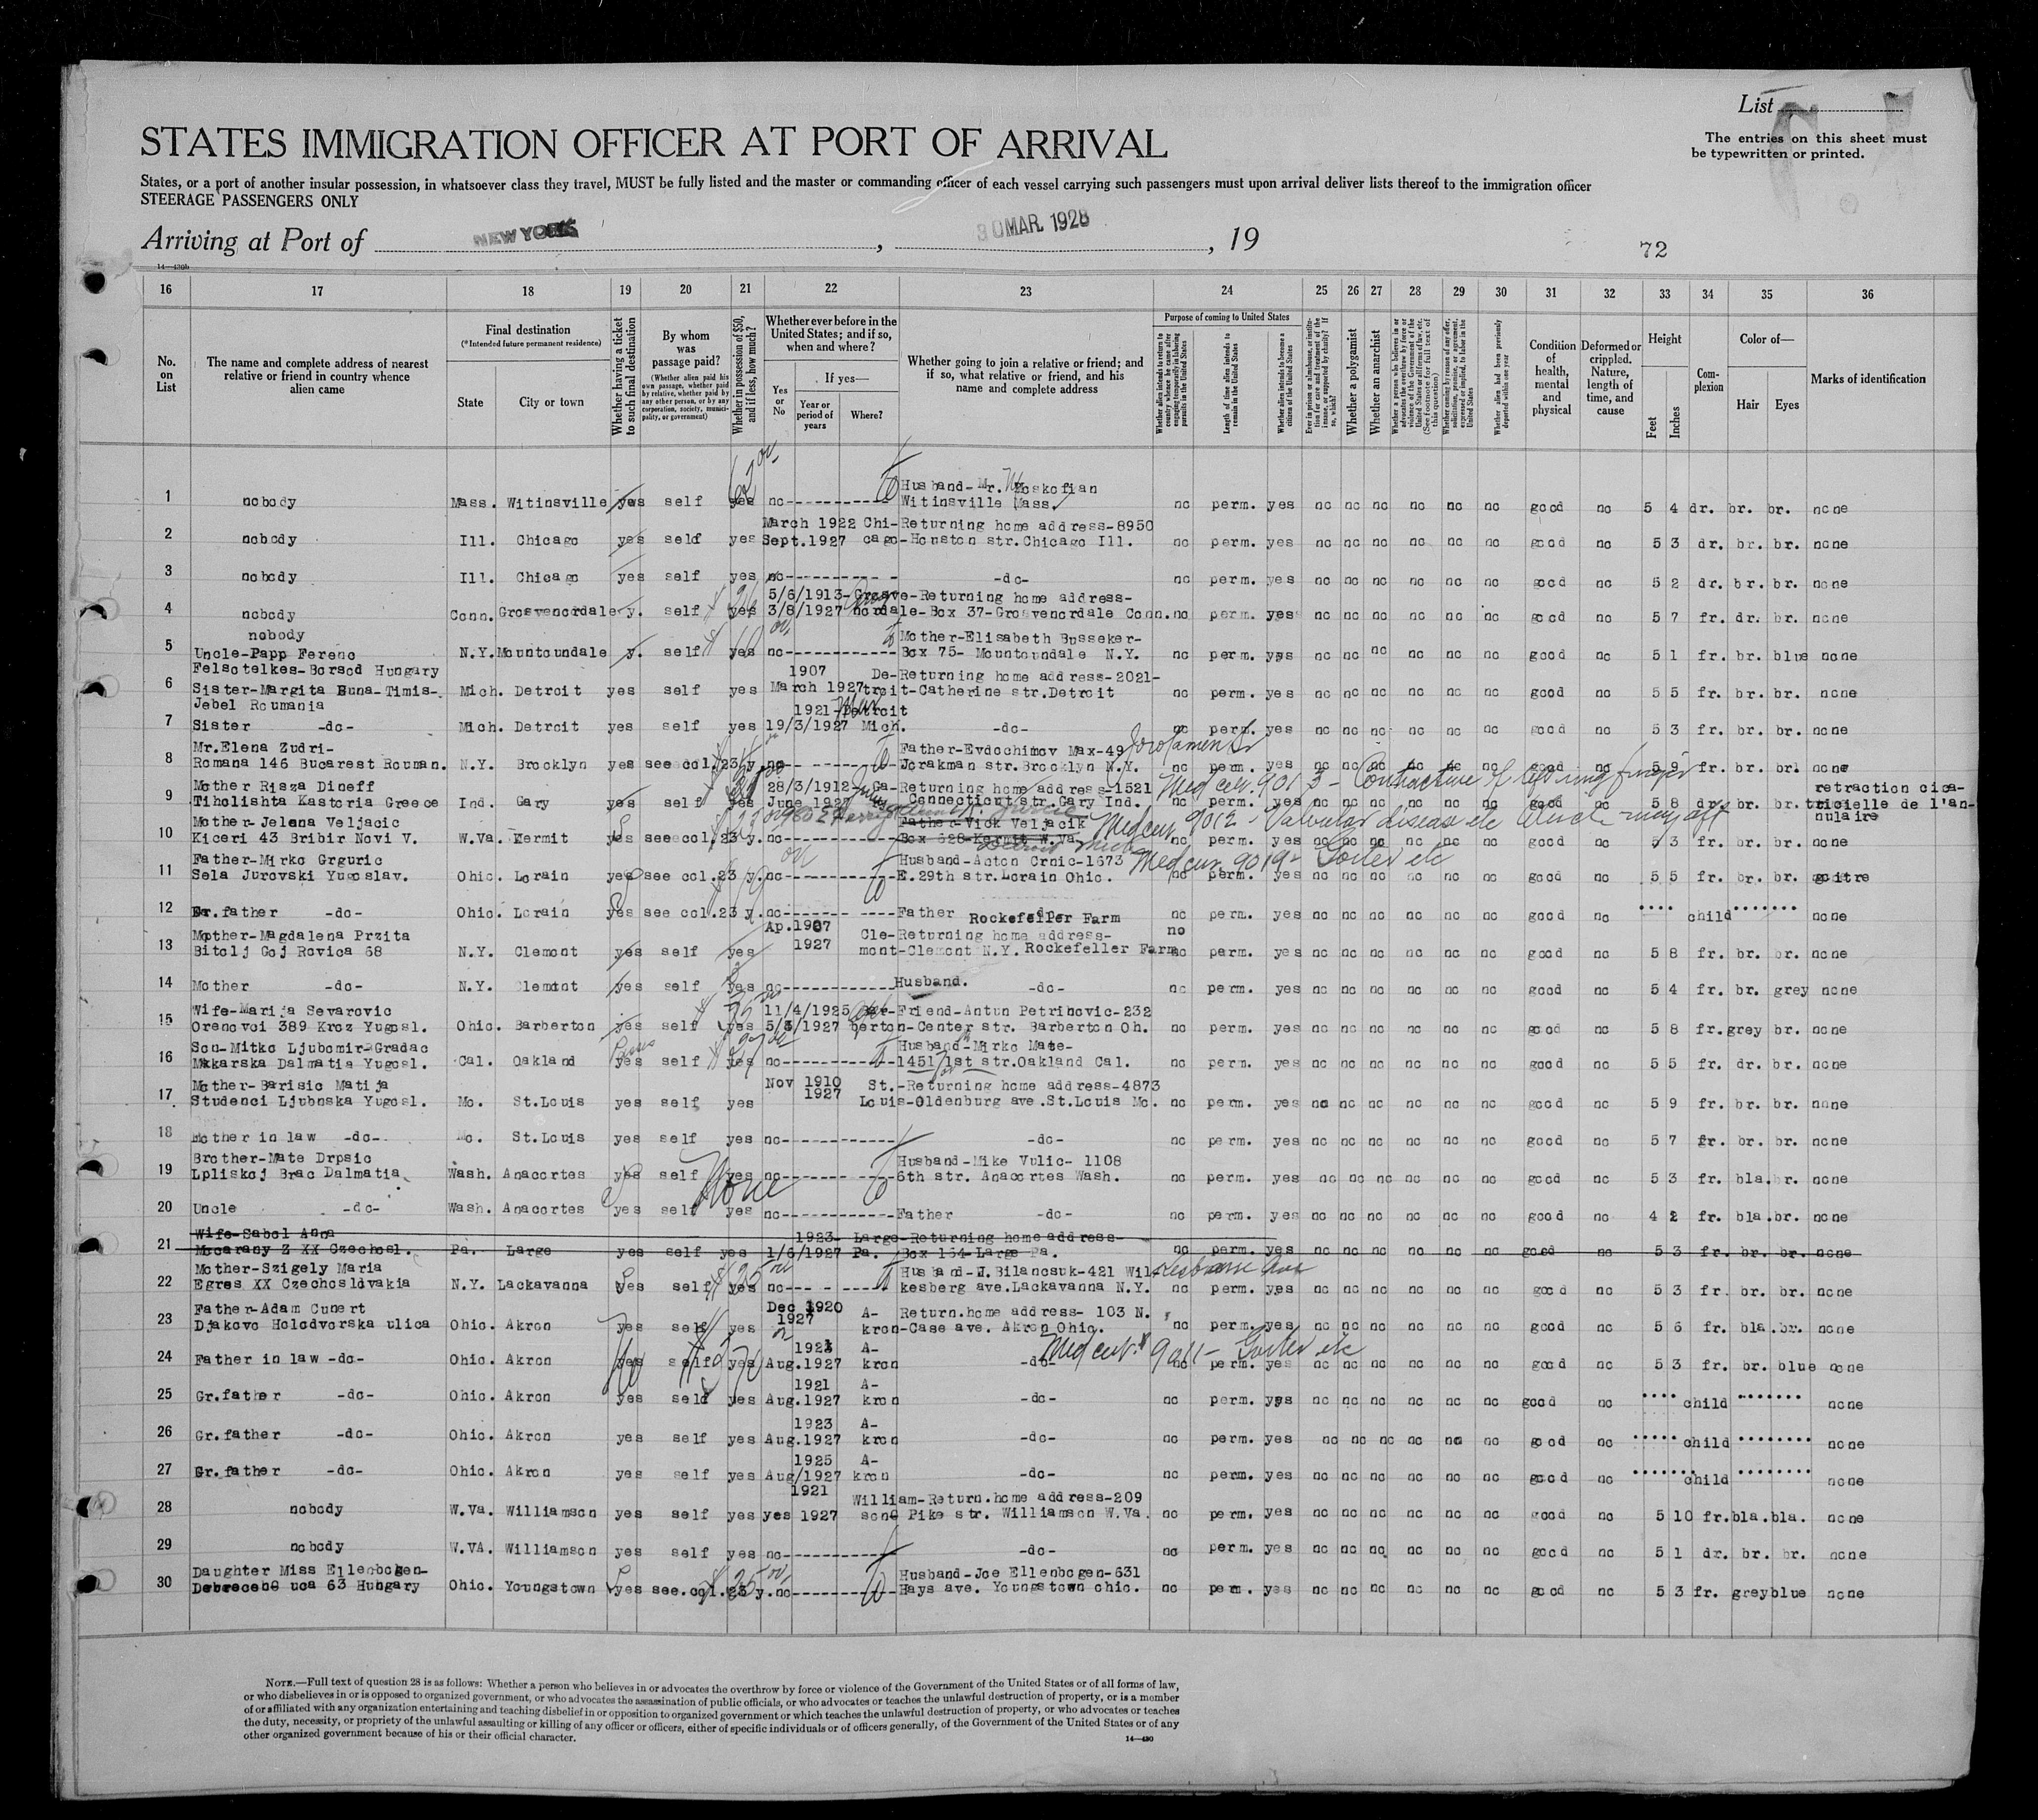 List
The entries on this sheet must
be typewritten or printed.
STATES IMMIGRATION OFFICER AT PORT OF ARRIVAL
States, or a port of another insular possession, in whatsoever class they travel, MUST be fully listed and the master or commanding officer of each vessel carrying such passengers must upon arrival deliver lists thereof to the immigration officer
STEERAGE PASSENGERS ONLY
Arriving at Port of NEW YORK , 30 MAR. 1928 , 19
72
16 17 18 19 20 21 22 23 24 25 26 27 28 29 30 31 32 33 34 35 36
No. on List
The name and complete address of nearest relative or friend in country whence alien came
Final destination
(*Intended future permanent residence)
State
City or town
Whether having a ticket to such final destination
By whom was passage paid?
(Whether alien paid his own passage, whether paid by relative, whether paid by any other person, or by any corporation, society, municipality, or government)
Whether in possession of $50, and if less, how much?
Whether ever before in the United States; and if so, when and where?
Yes or No
If yes—
Year or period of years
Where?
Whether going to join a relative or friend; and if so, what relative or friend, and his name and complete address
Purpose of coming to United States
Length of time alien intends to remain in the United States
Whether alien intends to become a citizen of the United States
Whether a polygamist
Whether an anarchist
Condition of health, mental and physical
Deformed or crippled. Nature, length of time, and cause
Height
Feet
Inches
Complexion
Color of—
Hair
Eyes
Marks of identification
1 nobody Mass. Witinsville yes self yes no Husband-Mr. Moskofian
Witinsville Mass. no perm. yes no no no no no no good no 5 4 dr. br. br. none
2 nobody Ill. Chicago yes self yes March 1922 Chi-Returning home address-8950
Sept.1927 cago-Houston str.Chicago Ill. no perm. yes no no no no no no good no 5 3 dr. br. br. none
3 nobody Ill. Chicago yes self yes no -do- no perm. yes no no no no no no good no 5 2 dr. br. br. none
4 nobody Conn. Grosvenordale y. self yes 5/6/1913-Grosve-Returning home address-
3/8/1927 nordale-Box 37-Grosvenordale Conn. no perm. yes no no no no no no good no 5 7 fr. dr. br. none
5 nobody
Uncle-Papp Ferenc N.Y. Mountoundale y. self yes no Mother-Elisabeth Busseker-
Box 75- Mountoundale N.Y. no perm. yes no no no no no no good no 5 1 fr. br. blue none
Felsotelkes-Borsod Hungary
6 Sister-Margita Buna-Timis-
Jebel Roumania Mich. Detroit yes self yes 1907 De-Returning home address-2021-
March 1927 troit-Catherine str.Detroit no perm. yes no no no no no no good no 5 5 fr. br. br. none
7 Sister -do- Mich. Detroit yes self yes 1921-Detroit
19/3/1927 Mich. -do- no perm. yes no no no no no no good no 5 3 fr. br. br. none
8 Mr.Elena Zudri-
Romana 146 Bucarest Rouman. N.Y. Brocklyn yes see col.23 y. no Father-Evdochimov Max-49
Jorakman str.Brocklyn N.Y. no perm. yes no no no no no no good no 5 9 fr. br. br. none
Med cert. 9013 - Contracture of left ring finger
9 Mother Risza Dineff
Tiholishta Kastoria Greece Ind. Gary yes self yes 28/3/1912- Ga-Returning home address-1521
June 1927 Connecticut str.Gary Ind. no perm. yes no no no no no no good no 5 8 dr. br. br. retraction cica-
tricielle de l'an-
nulaire
Med cert. 9012 - Valvular disease etc which may aff
10 Mother-Jelena Veljacic
Kiceri 43 Bribir Novi V. W.Va. Kermit yes see col.23 y. no Father-Vick Veljacik
Box 628-Kermit W.Va. no perm. yes no no no no no no good no 5 3 fr. br. br. none
Med cert. 9019 - Goiter etc
11 Father-Mirko Grguric
Sela Jurovski Yugoslav. Ohio. Lorain yes see col.23 y. no Husband-Anton Crnic-1673
E.29th str.Lorain Ohio. no perm. yes no no no no no no good no 5 5 fr. br. br. goitre
12 Gr.father -do- Ohio. Lorain yes see col.23 y. no Father -do- no perm. yes no no no no no no good no child none
13 Mother-Magdalena Przita
Bitolj Goj Rovica 68 N.Y. Clemont yes self yes Ap.1907 Rockefeller Farm
1927 Cle-Returning home address-
mont-Clemont N.Y. Rockefeller Farm no perm. yes no no no no no no good no 5 8 fr. br. br. none
14 Mother -do- N.Y. Clemont yes self yes no Husband. -do- no perm. yes no no no no no no good no 5 4 fr. br. grey none
15 Wife-Marija Sevarovic
Orenovci 389 Kroz Yugosl. Ohio. Barberton yes self yes 11/4/1925 Bar-Friend-Antun Petrihovic-232
5/3/1927 berton-Center str. Barberton Oh. no perm. yes no no no no no no good no 5 8 fr. grey br. none
16 Son-Mitko Ljubomir-Gradac
Makarska Dalmatia Yugosl. Cal. Oakland yes self yes no Husband-Mirko Mate-
1451 71st str.Oakland Cal. no perm. yes no no no no no no good no 5 5 fr. dr. br. none
17 Mother-Barisic Matija
Studenci Ljubnska Yugosl. Mo. St.Louis yes self yes Nov 1910 St.-Returning home address-4873
1927 Louis-Oldenburg ave.St.Louis Mo. no perm. yes no no no no no no good no 5 9 fr. br. br. none
18 Mother in law -do- Mo. St.Louis yes self yes no -do- no perm. yes no no no no no no good no 5 7 fr. br. br. none
19 Brother-Mate Drpsic
Lpliskoj Brac Dalmatia Wash. Anacortes yes self yes no Husband-Mike Vulic- 1108
6th str. Anacortes Wash. no perm. yes no no no no no no good no 5 3 fr. bla. br. none
None
20 Uncle -do- Wash. Anacortes yes self yes no Father -do- no perm. yes no no no no no no good no 4 2 fr. bla. br. none
21 Wife-Sabol Anna
Mocarany Z XX Czechosl. Pa. Large yes self yes 1923- Large-Returning home address-
1/6/1927 Pa. Box 164-Large Pa. no perm. yes no no no no no no good no 5 3 fr. br. br. none
22 Mother-Szigely Maria
Egres XX Czechosldvakia N.Y. Lackavanna yes self yes no Husband-J. Bilancsuk-421 Wil-
kesberg ave.Lackavanna N.Y. no perm. yes no no no no no no good no 5 3 fr. br. br. none
23 Father-Adam Cunert
Djakovo Holodvorska ulica Ohio. Akron yes self yes Dec 1920 A- Return.home address- 103 N.
1927 kron-Case ave. Akron Ohio. no perm. yes no no no no no no good no 5 6 fr. bla. br. none
Med cert. 9011 - Goiter etc
24 Father in law -do- Ohio. Akron yes self yes 1921 A-
Aug.1927 kron -do- no perm. yes no no no no no no good no 5 3 fr. br. blue none
25 Gr.father -do- Ohio. Akron yes self yes 1921 A-
Aug.1927 kron -do- no perm. yes no no no no no no good no child none
26 Gr.father -do- Ohio. Akron yes self yes 1923 A-
Aug.1927 kron -do- no perm. yes no no no no no no good no child none
27 Gr.father -do- Ohio. Akron yes self yes 1925 A-
Aug/1927 kron -do- no perm. yes no no no no no no good no child none
28 nobody W.Va. Williamson yes self yes yes 1921
1927 William-Return.home address-209
son Pike str. Williamson W.Va. no perm. yes no no no no no no good no 5 10 fr. bla. bla. none
29 nobody W.VA. Williamson yes self yes no -do- no perm. yes no no no no no no good no 5 1 dr. br. br. none
30 Daughter Miss Ellenbogen-
Debreceb uca 63 Hungary Ohio. Youngstown yes see.col.23 y. no Husband-Joe Ellenbogen-631
Hays ave. Youngstown ohio. no perm. yes no no no no no no good no 5 3 fr. grey blue none
NOTE.—Full text of question 28 is as follows: Whether a person who believes in or advocates the overthrow by force or violence of the Government of the United States or of all forms of law,
or who disbelieves in or is opposed to organized government, or who advocates the assassination of public officials, or who advocates or teaches the unlawful destruction of property, or is a member
of or affiliated with any organization entertaining and teaching disbelief in or opposition to organized government or which teaches the unlawful destruction of property, or who advocates or teaches
the duty, necessity, or propriety of the unlawful assaulting or killing of any officer or officers, either of specific individuals or of officers generally, of the Government of the United States or of any
other organized government because of his or their official character.
14—430